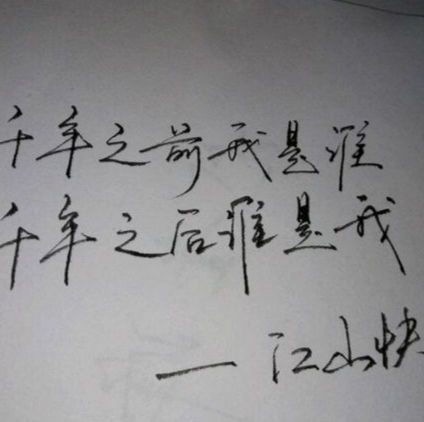 千年之前我是谁
千年之后谁是我
—江山快